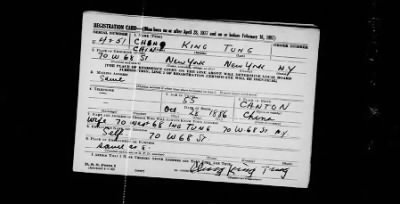 REGISTRATION CARD—(Men born on or after April 28, 1877 and on or before February 16, 1897)
SERIAL NUMBER 1. NAME (Print) ORDER NUMBER
U 4251 CHENG KING TUNG
70 W 68 ST New York New York NY
[THE PLACE OF RESIDENCE GIVEN ON THE LINE ABOVE WILL DETERMINE LOCAL BOARD
JURISDICTION; LINE 2 OF REGISTRATION CERTIFICATE WILL BE IDENTICAL]
3. MAILING ADDRESS
Same
4. TELEPHONE 5. AGE IN YEARS 6. PLACE OF BIRTH
55 CANTON
DATE OF BIRTH
Oct 28 1886 China
7. NAME AND ADDRESS OF PERSON WHO WILL ALWAYS KNOW YOUR ADDRESS
Wife 70 West 68 TUNG 70 W 68 ST NY
8. EMPLOYER'S NAME AND ADDRESS
Self 70 W 68 ST
9. PLACE OF EMPLOYMENT OR BUSINESS
Same as 8
I AFFIRM THAT I HAVE VERIFIED ABOVE ANSWERS AND THAT THEY ARE TRUE
King Tung